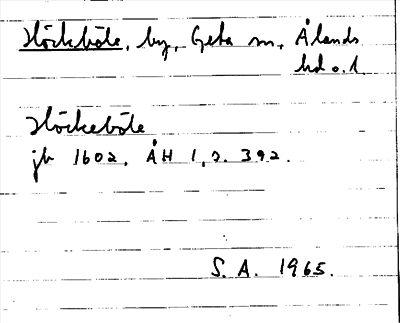 Höckböle, by, Geta sn, Ålands
hd o. l.
Höckeböle
jb 1602, ÅH 1, s. 392.
S. A. 1965.